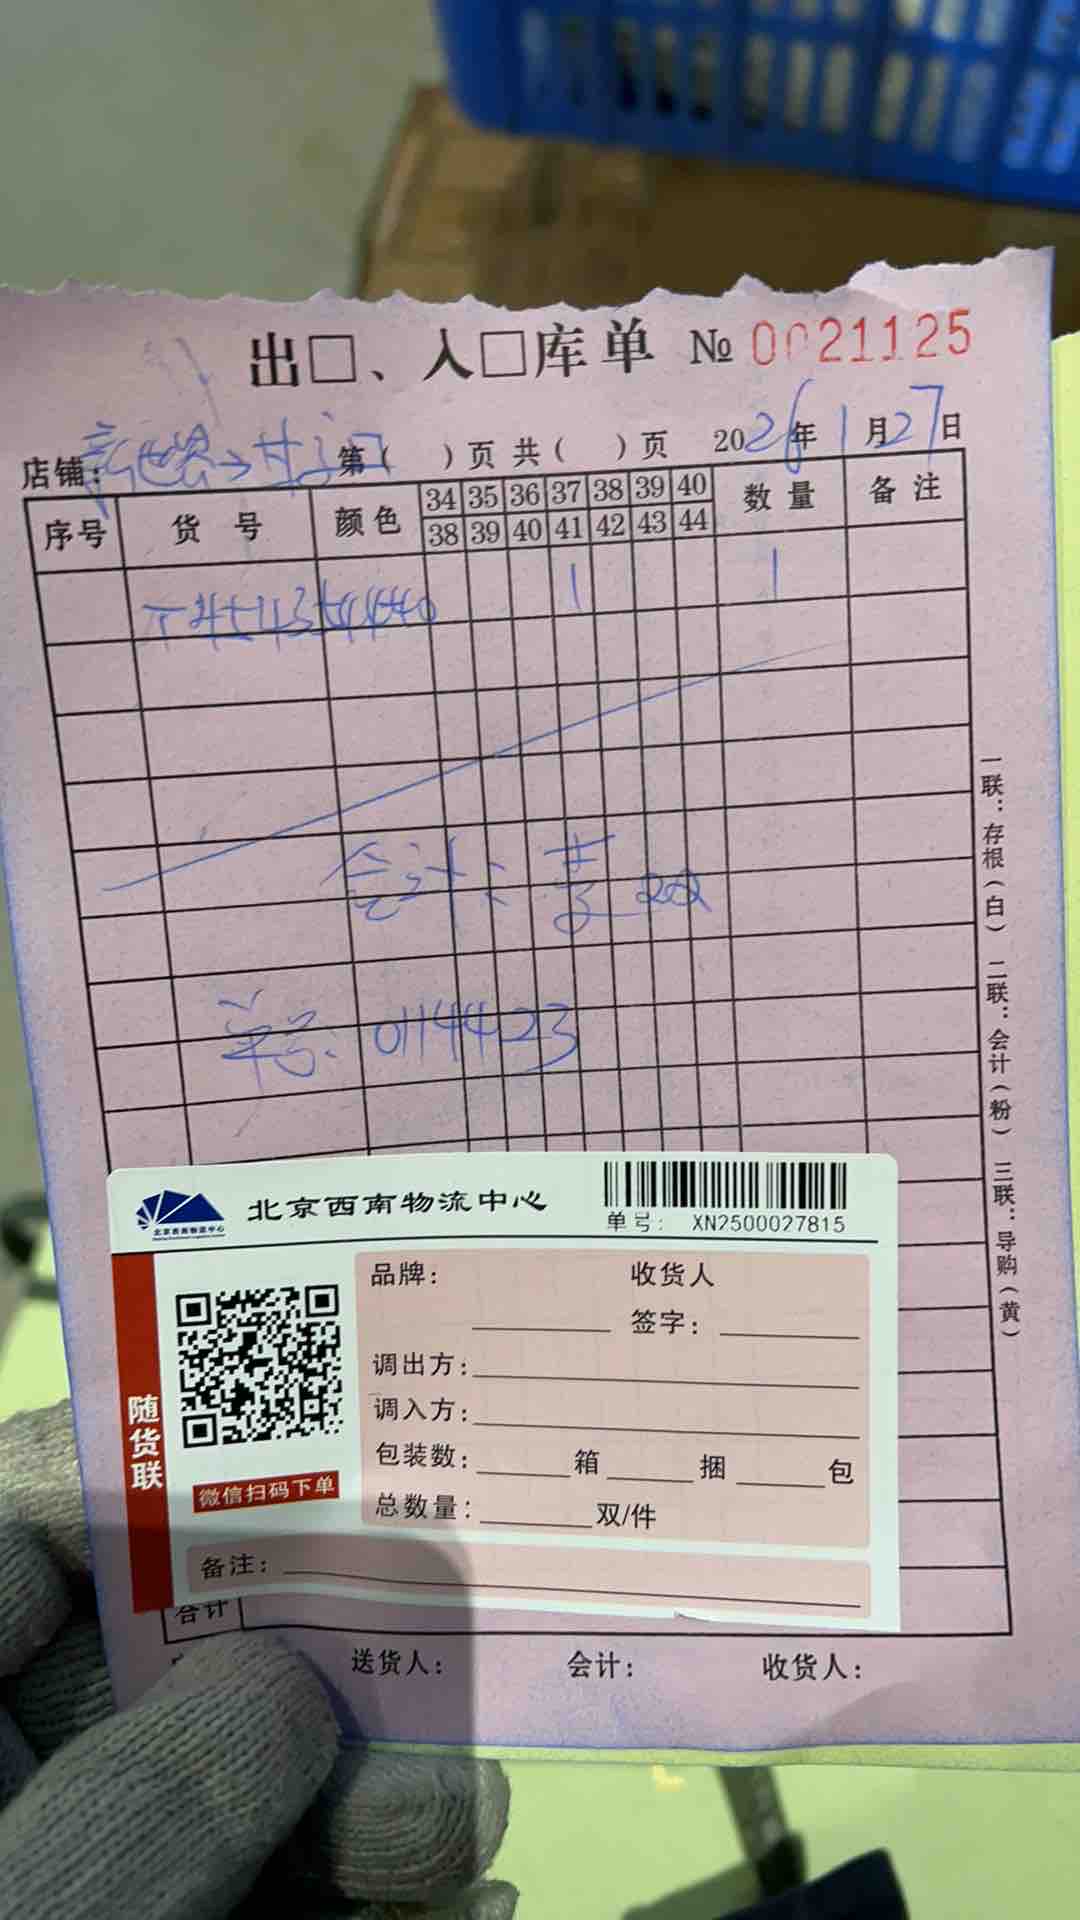 出□、入□库单 № 0021125
店铺: 新世界→甘家口 第( )页 共( )页 2026年1月27日
序号 货号 颜色 34 35 36 37 38 39 40 数量 备注
38 39 40 41 42 43 44
1 1
会计: 李双双
单号: 0114423
一联:存根(白) 二联:会计(粉) 三联:导购(黄)
北京西南物流中心
北京西南物流中心
单号: XN2500027815
品牌: 收货人
签字:
调出方:
调入方:
包装数: 箱 捆 包
总数量: 双/件
随货联
微信扫码下单
备注:
合计
送货人: 会计: 收货人: